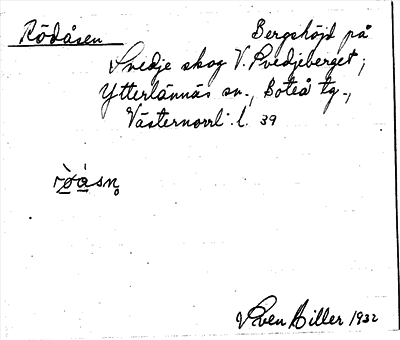 Rödåsen Bergshöjd på
Svedje skog V. Svedjeberget;
Ytterlännäs sn., Boteå tg.,
Västernorrl. l. 39
rò̲á̲sn̥
Sven Hiller 1932